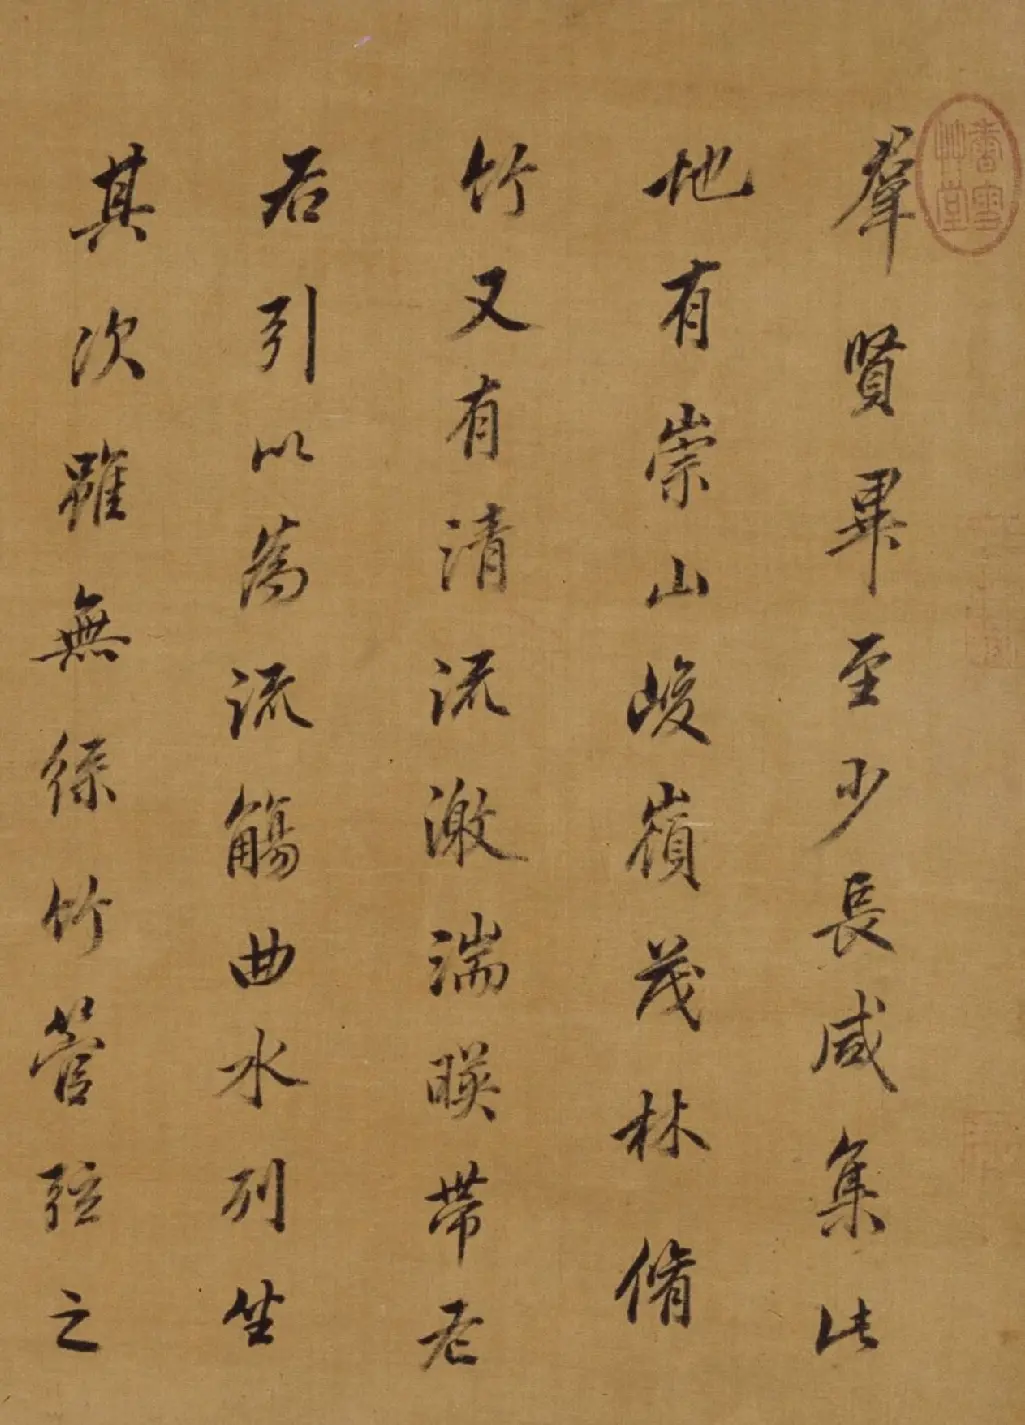 香雪艸堂
羣賢畢至少長咸集此
地有崇山峻嶺茂林脩
竹又有清流激湍暎帶左
右引以為流觴曲水列坐
其次雖無絲竹管弦之